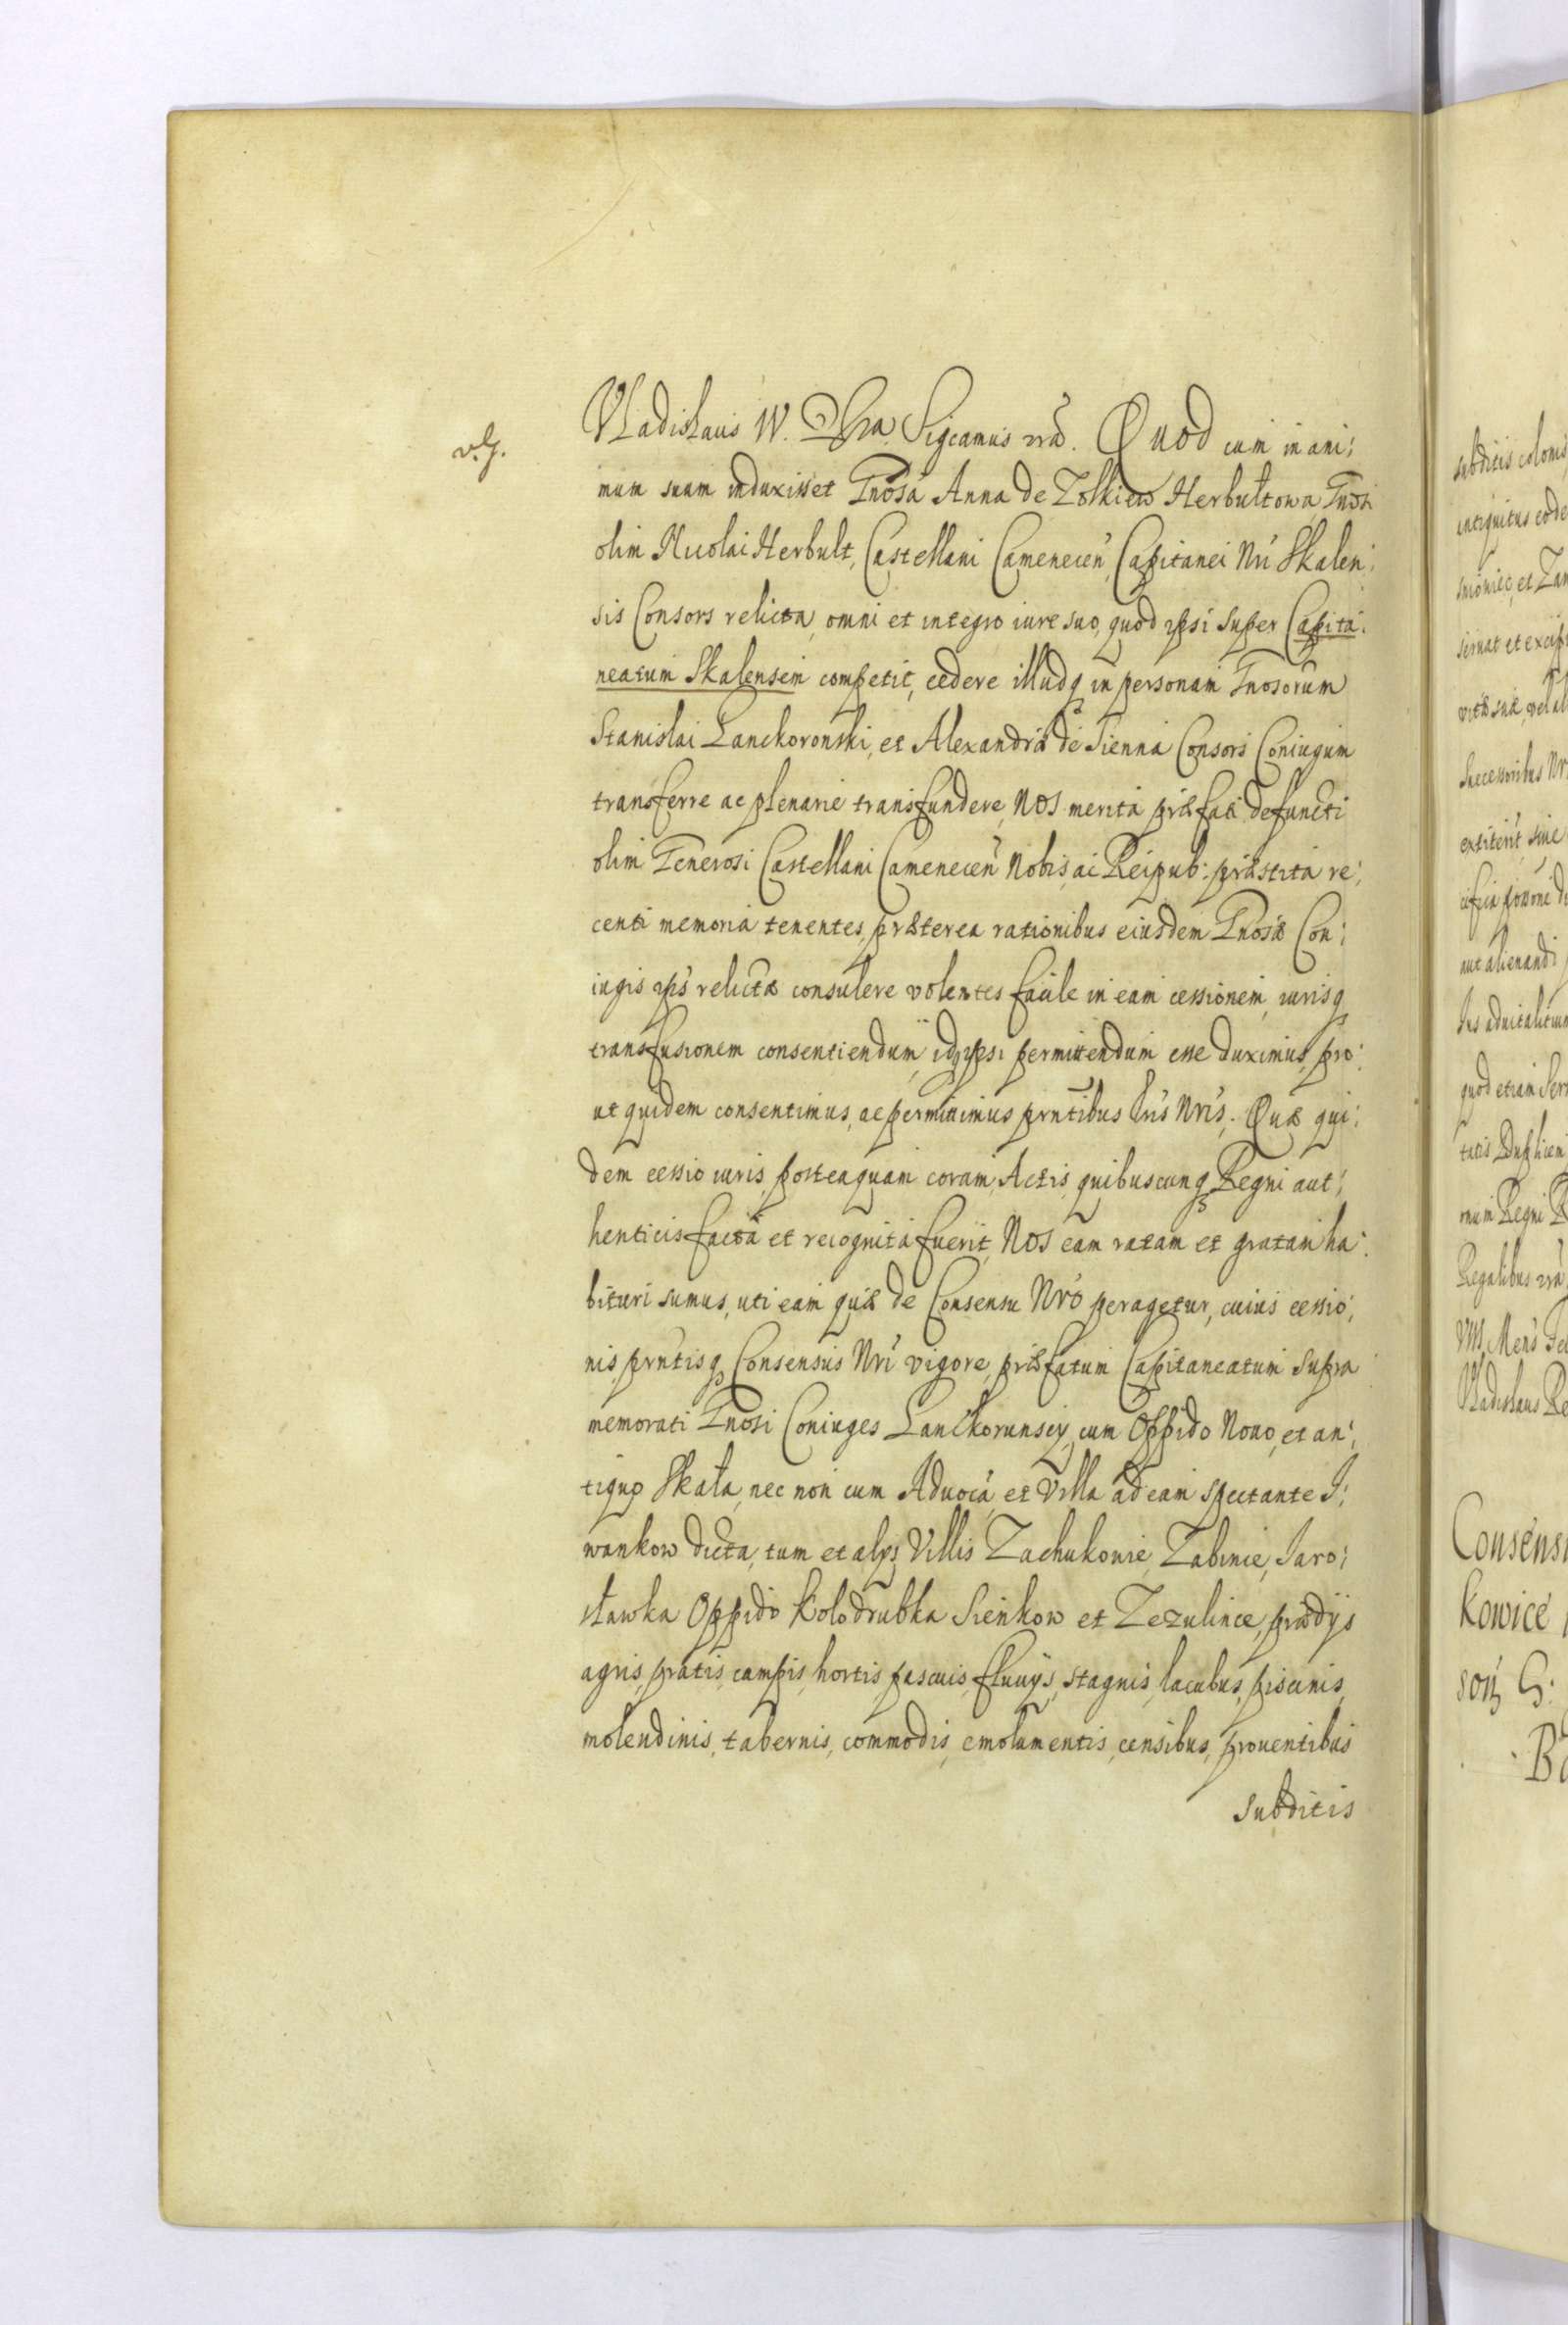 v. G.
Vladislaus IV. D. Gra. Sigcamus rrã. Quod cum in ani:
mum suum induxisset Gnosa Anna de Zołkiew Herbultowa Gnosi
olim Nicolai Herbult, Castellani Camenecen̄, Capitanei Nrī Skalen:
sis Consors relicta, omni et integro iure suo, quod ipsi super Capita:
neatum Skalensem competit, cedere illudq in personam Gnosorum
Stanislai Lanckoronski, et Alexandræ de Sienna Consors Coniugum
transferre ac plenarie transfundere, Nos merita præfati defuncti
olim Generosi Castellani Camenecen̄ Nobis, ac Reipub: præstita re:
centi memoria tenentes, præterea rationibus eiusdem Gnosæ Con:
iugis ips̄ relictæ consulere volentes facile in eam cessionem, iurisq
transfusionem consentiendum, idq ipsi permittendum esse duximus, pro:
ut quidem consentimus, ac permittimus prntibus Lrīs Nrīs. Quæ qui:
dem cessio iuris, posteaquam coram Actis quibuscunq Regni aut:
henticis facta et recognita fuerit, Nos eam ratam et gratam ha:
bituri sumus, uti eam quæ de Consensu Nrō peragetur, cuius cessio:
nis, prntisq Consensus Nrī vigore, præfatum Capitaneatum supra
memorati Gnosi Coniuges Lanckorunscy, cum Oppido Nouo, et an:
tiquo Skała, nec non cum Aduocã, et Villa ad eam spectante I:
wankow dicta, tum et alys Villis Zachukowie, Zabinie, Jaro:
sławka Oppido Kolodrubka Sieńkow et Zezulince, prædijs
agris, pratis, campis, hortis, pascuis, fluuijs, stagnis, lacubus, piscinis,
molendinis, tabernis, commodis, emolumentis, censibus, prouentibus
subditis
subditis colonis
antiquitus
et Zam
seruat et
vitæ suæ, vel
Successoribus Nr
extiterit, siue
aut alienandi
Ius aduitalitium
quod etiam Ser
tatis
num Regni
Regalibus rrã
VIII. Mens
Vladislaus Re
Consensu
kowice
son G: